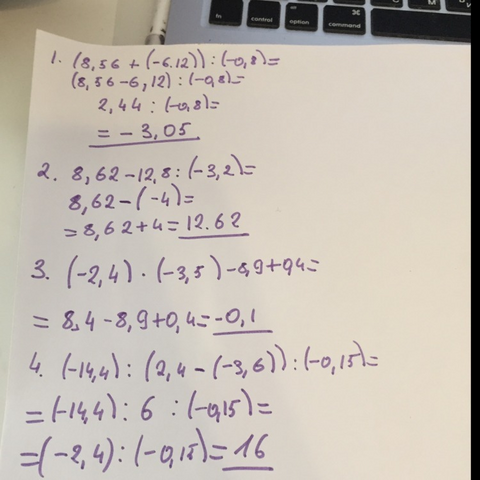 fn
control
option
⌘
command
1. (8,56 + (-6.12)) : (-0,8)=
(8,56-6,12) : (-0,8)=
2,44 : (-0,8)=
= - 3,05
2. 8,62-12,8 : (-3,2)=
8,62-(-4)=
=8,62+4=12.62
3. (-2,4) · (-3,5)-8,9+0,4=
= 8,4-8,9+0,4=-0,1
4. (-14,4) : (2,4-(-3,6)) : (-0,15)=
=(-14,4) : 6 : (-0,15)=
=(-2,4) : (-0,15)=16